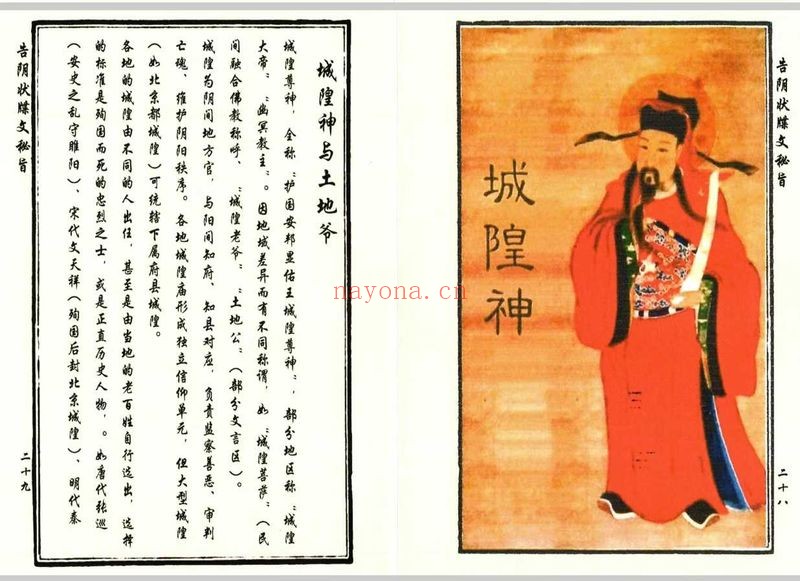 告阴状牒文秘旨
城隍神
二十八
城隍神与土地爷
城隍尊神，全称“护国安邦显佑王城隍尊神”，部分地区称“城隍
大帝”“幽冥教主”。因地域差异而有不同称谓，如“城隍菩萨”（民
间融合佛教称呼、“城隍老爷”、“土地公”（部分文言区）。
城隍为阴间地方官，与阳间知府、知县对应，负责监察善恶、审判
亡魂、维护阴阳秩序。各地城隍庙形成独立信仰单元，但大型城隍
（如北京都城隍）可统辖下属府县城隍。
各地的城隍由不同的人出任，甚至是由当地的老百姓自行选出，选择
的标准是殉国而死的忠烈之士，或是正直历史人物，。如唐代张巡
（安史之乱守睢阳）、宋代文天祥（殉国后封北京城隍）、明代秦
告阴状牒文秘旨
二十九
nayona.cn